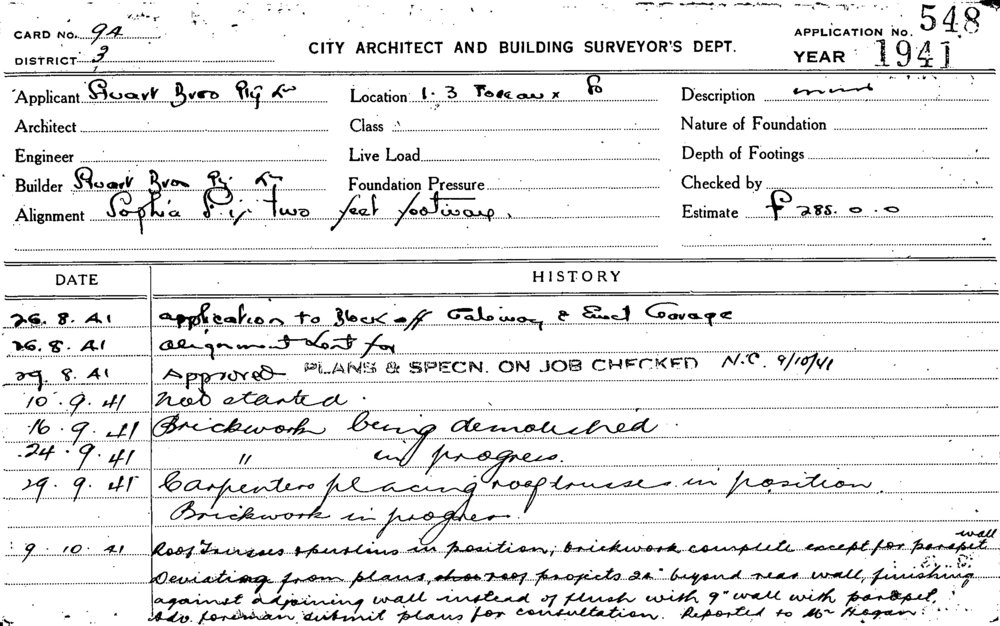 CARD No. 94
DISTRICT 3
CITY ARCHITECT AND BUILDING SURVEYOR'S DEPT.
APPLICATION No. 548
YEAR 1941
Applicant Stuart Bros Pty Ltd
Location 1-3
Description
Architect
Class
Nature of Foundation
Engineer
Live Load
Depth of Footings
Builder Stuart Bros Pty Ltd
Foundation Pressure
Checked by
Alignment Sophia St. two feet footways.
Estimate £ 285.0.0
DATE HISTORY
26.8.41 application to Block off Gateway & Erect Garage
26.8.41 alignment sent for
29.8.41 Approved PLANS & SPECN. ON JOB CHECKED N.C. 9/10/41
10.9.41 Not started.
16.9.41 Brickwork being demolished.
24.9.41 " in progress.
29.9.41 Carpenters placing roof trusses in position.
Brickwork in progress.
9.10.41 Roof Trusses & purlins in position, brickwork complete except for parapet wall
Deviating from plans, roof projects 20" beyond rear wall, finishing
against adjoining wall instead of flush with 9" wall with parapet.
Adv. foreman submit plans for consultation. Reported to Mr Hogan